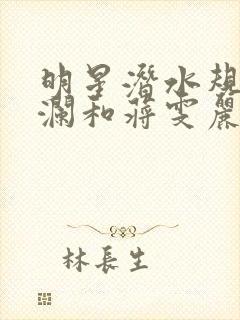 明星潛水規
瀾和蔣雯麗
林長生